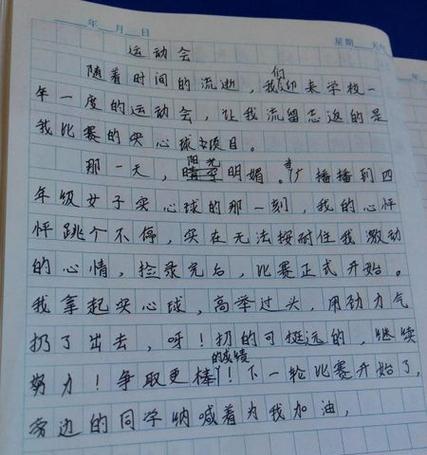 年 月 日
星期 天气
运动会
随着时间的流逝，我们迎来学校一
年一度的运动会，让我流留忘返的是
我比赛的实心球项目。
那一天，阳光明媚。广播播到四
年级女子实心球的那一刻，我的心怦
怦跳个不停，实在无法按耐住我激动
的心情，捡录完后，比赛正式开始。
我拿起实心球，高举过头，用劲力气
扔了出去，呀！扔的可挺远的，继续
努力！争取更棒的成绩！下一轮比赛开始了，
旁边的同学呐喊着为我加油，